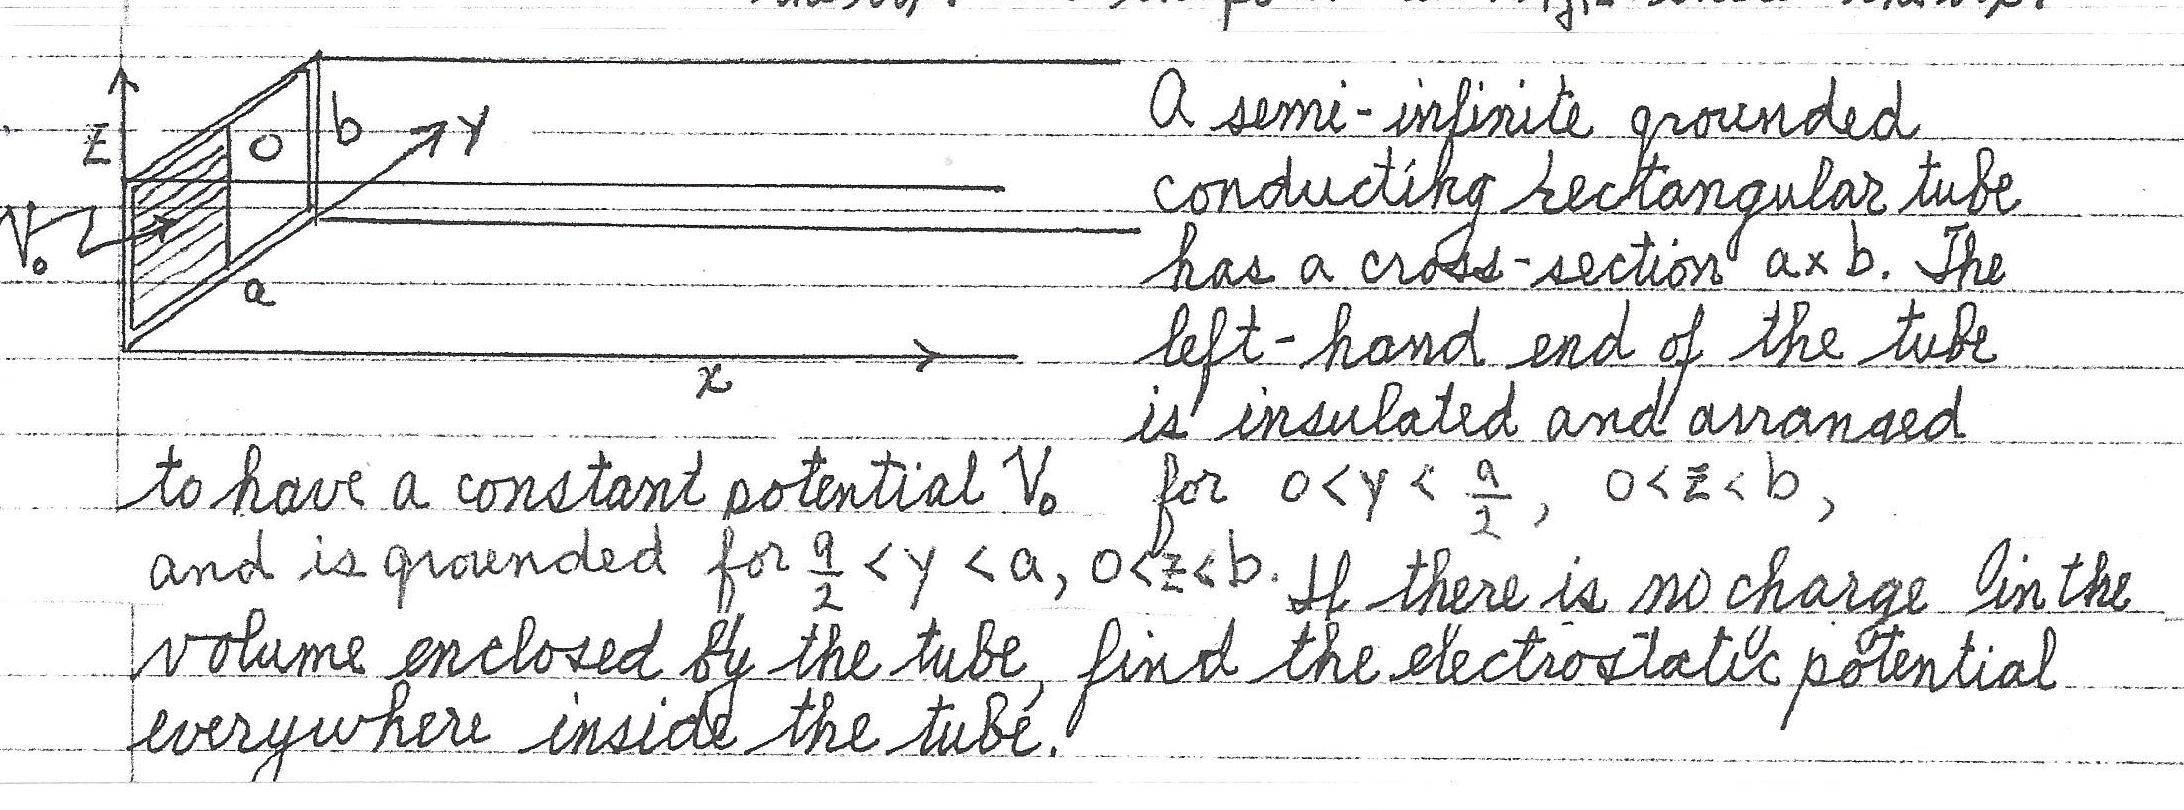 z
b
0
y
V₀
a
x
A semi-infinite grounded
conducting rectangular tube
has a cross-section a×b. The
left-hand end of the tube
is insulated and arranged
to have a constant potential V₀ for 0<y<a/2, 0<z<b,
and is grounded for a/2<y<a, 0<z<b. If there is no charge in the
volume enclosed by the tube, find the electrostatic potential
everywhere inside the tube.